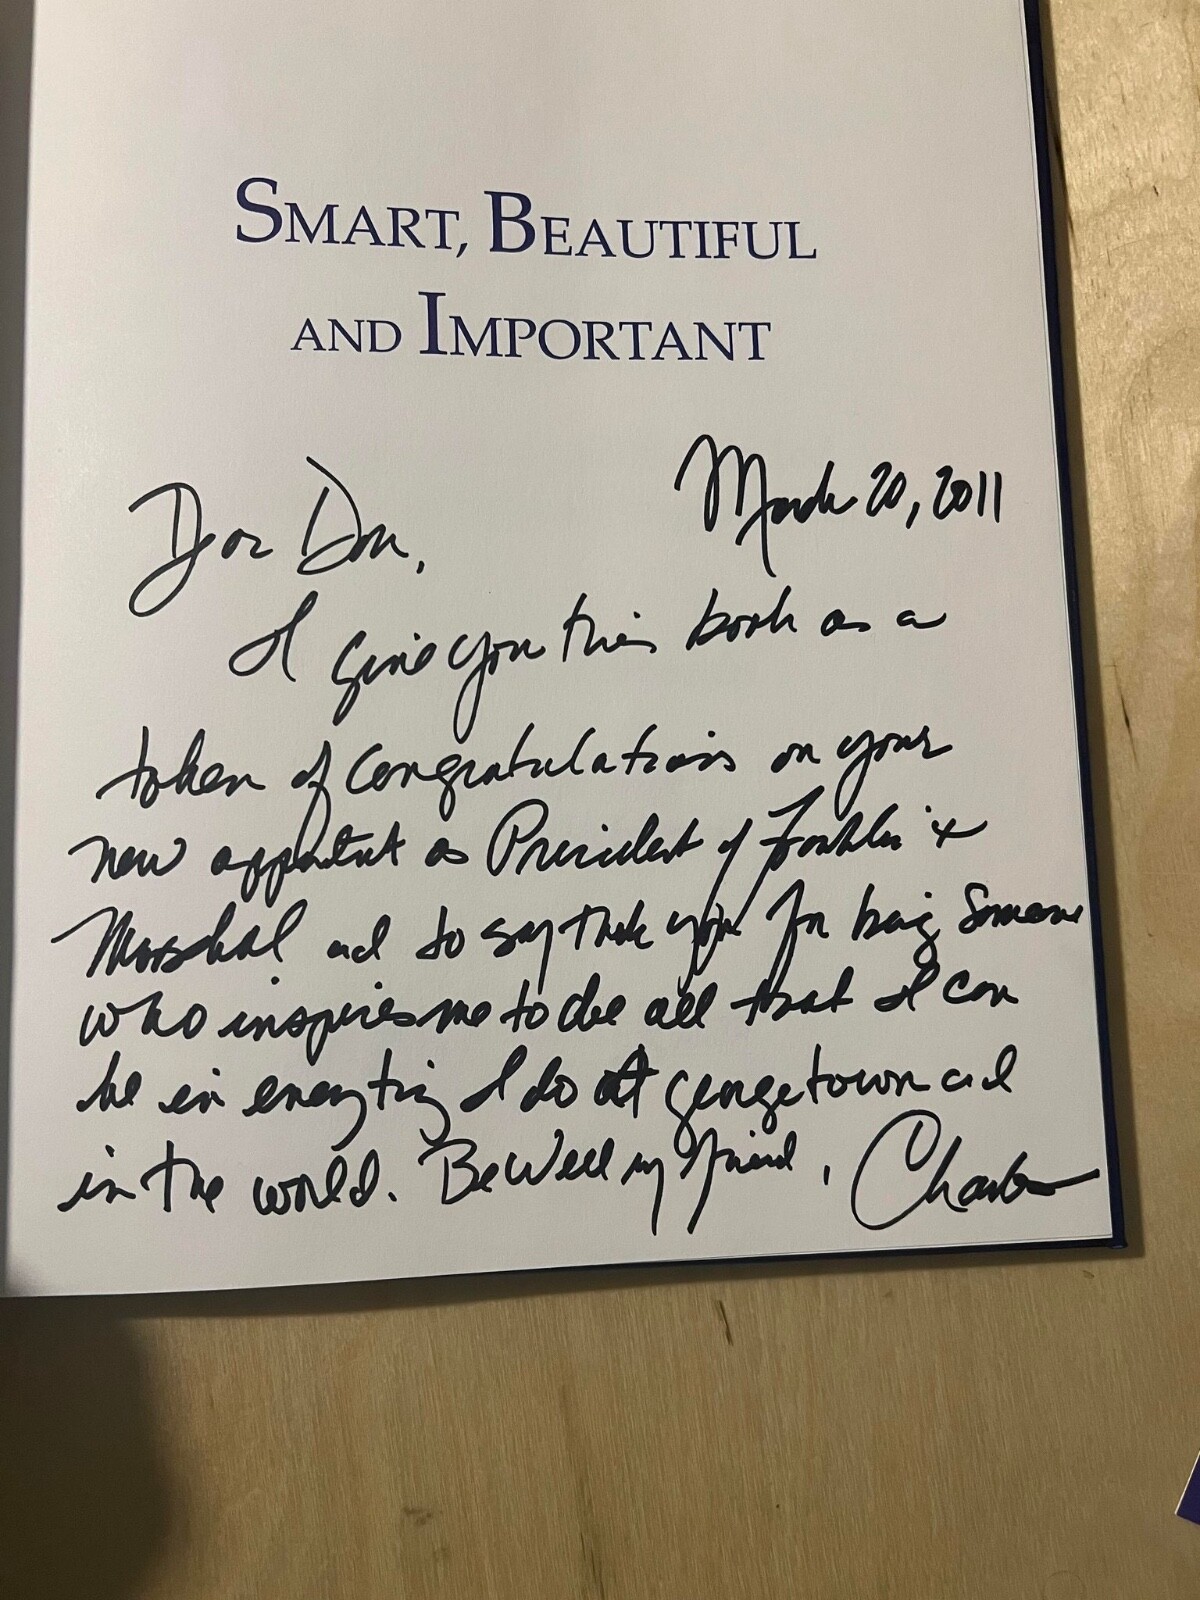 SMART, BEAUTIFUL
AND IMPORTANT
March 20, 2011
Dear Dan,
I give you this book as a
token of congratulations on your
new appointment as President of Franklin &
Marshall and to say thank you for being someone
who inspires me to be all that I can
be in everything I do at Georgetown and
in the world. Be Well my friend, Charles